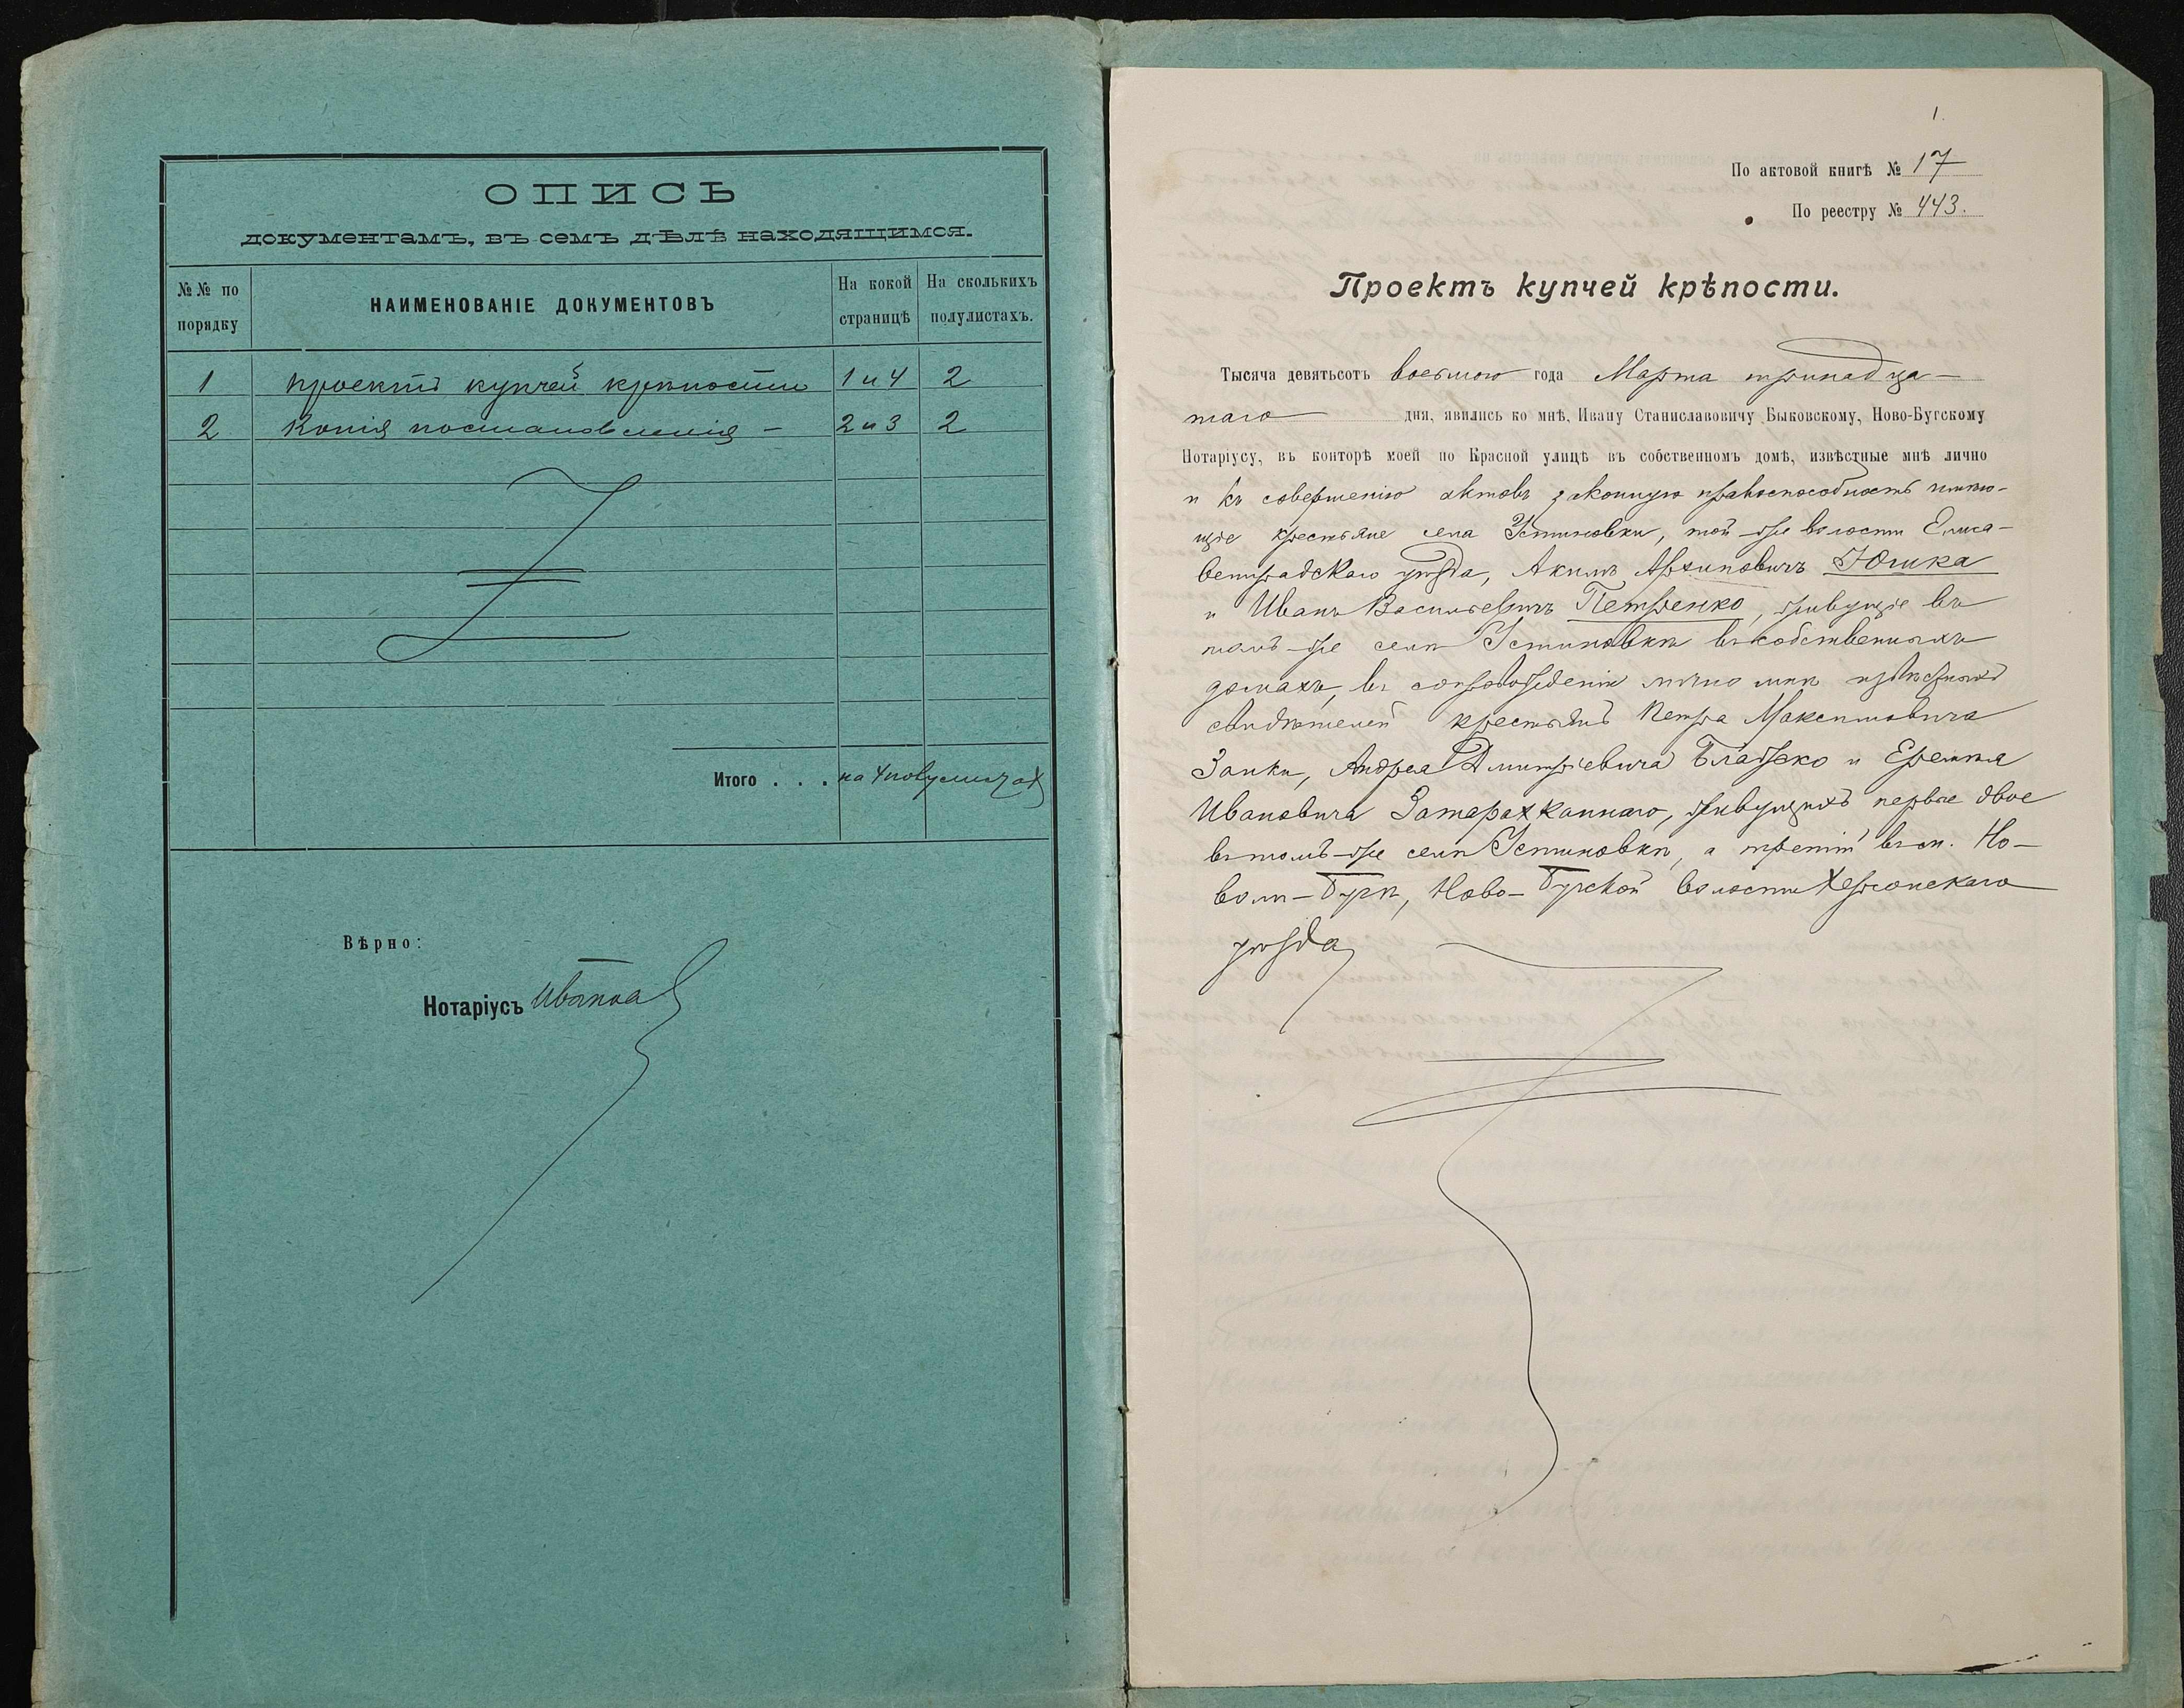 ОПИСЬ
документамъ, въ семъ дѣлѣ находящимся.
№№ по порядку
НАИМЕНОВАНІЕ ДОКУМЕНТОВЪ
На какой страницѣ
На сколькихъ полулистахъ.
1 проектъ купчей крѣпости 1 и 4 2
2 Копія постановленія - 2 и 3 2
Итого . . . на 4 полулистах
Вѣрно:
Нотаріусъ
1.
По актовой книгѣ № 17
По реестру № 443.
Проектъ купчей крѣпости.
Тысяча девятьсотъ восьмого года Марта тринадца-
таго дня, явились ко мнѣ, Ивану Станиславовичу Быковскому, Ново-Бугскому
Нотаріусу, въ конторѣ моей по Красной улицѣ въ собственномъ домѣ, извѣстные мнѣ лично
и къ совершенію актовъ законную правоспособность имѣю-
щіе крестьяне села Устиновки, той-же волости Елиса-
ветградскаго уѣзда, Акимъ Архиповичъ Юшка
и Иванъ Васильевичъ Петренко, живущіе въ
томъ-же селѣ Устиновкѣ въ собственныхъ
домахъ, въ сопровожденіи лично мнѣ извѣстныхъ
свидѣтелей крестьянъ Петра Максимовича
Заики, Андрея Дмитріевича Блажко и Еремѣя
Ивановича Затараханнаго, живущихъ первые двое
въ томъ-же селѣ Устиновкѣ, а третій въ м. Но-
вомъ-Бугѣ, Ново-Бугской волости Херсонскаго
уѣзда,